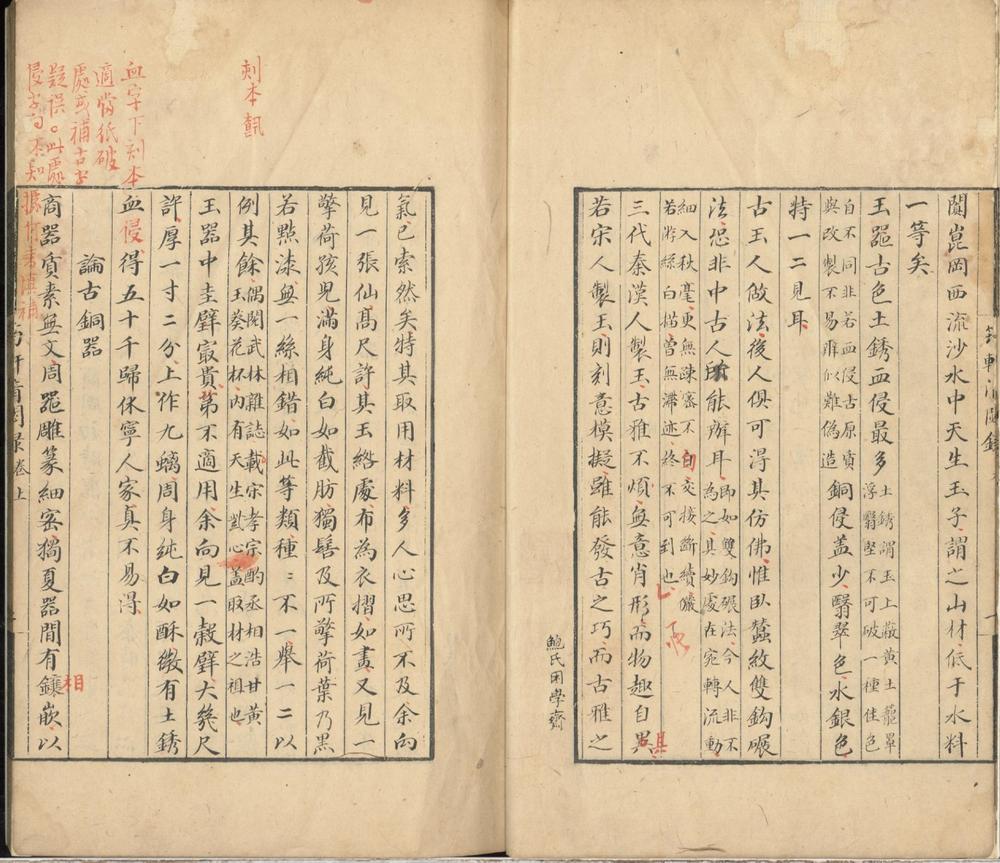 闐崑岡西流沙水中天生玉子謂之山材低于水料
一等矣
玉噐古色土銹血侵最多土銹謂玉上蔽黄土籠罩
浮翳堅不可破一種佳色
自不同非若血侵古原質
與改製不易雖似難偽造銅侵盖少翳翠色水銀色
特一二見耳
古玉人做法後人俱可得其仿佛惟臥蠶紋雙鈎碾
法恐非中古人所能辦耳即如雙鈎碾法今人非不
為之其妙處在宛轉流動
細入秋毫更無疎密不勻交接斷續儼
若游絲白描曾無滯迹終不可到也
三代秦漢人製玉古雅不煩無意肖形而物趣自異
若宋人製玉則刻意模擬雖能發古之巧而古雅之
鮑氏困學齋
氣已索然矣特其取用材料多人心思所不及余向
見一張仙高尺許其玉綹處布為衣摺如畫又見一
擎荷孩兒滿身純白如截肪獨髻及所擎荷葉乃黑
若點漆無一絲相錯如此等類種〻不一舉一二以
例其餘偶閱武林雜誌載宋孝宗酌丞相浩甘黄
玉葵花杯内有天生對心盖取材之祖也
玉器中圭璧寂貴第不適用余向見一穀璧大幾尺
許厚一寸二分上作九螭周身純白如酥緻有土銹
血侵得五十千歸休寧人家真不易得
論古銅器
商器质素無文周噐雕篆細密獨夏器間有鑲嵌以
相
刻本
血字下刻本
適當紙破
處或補古字
疑誤此處
侵字白不知
卷上